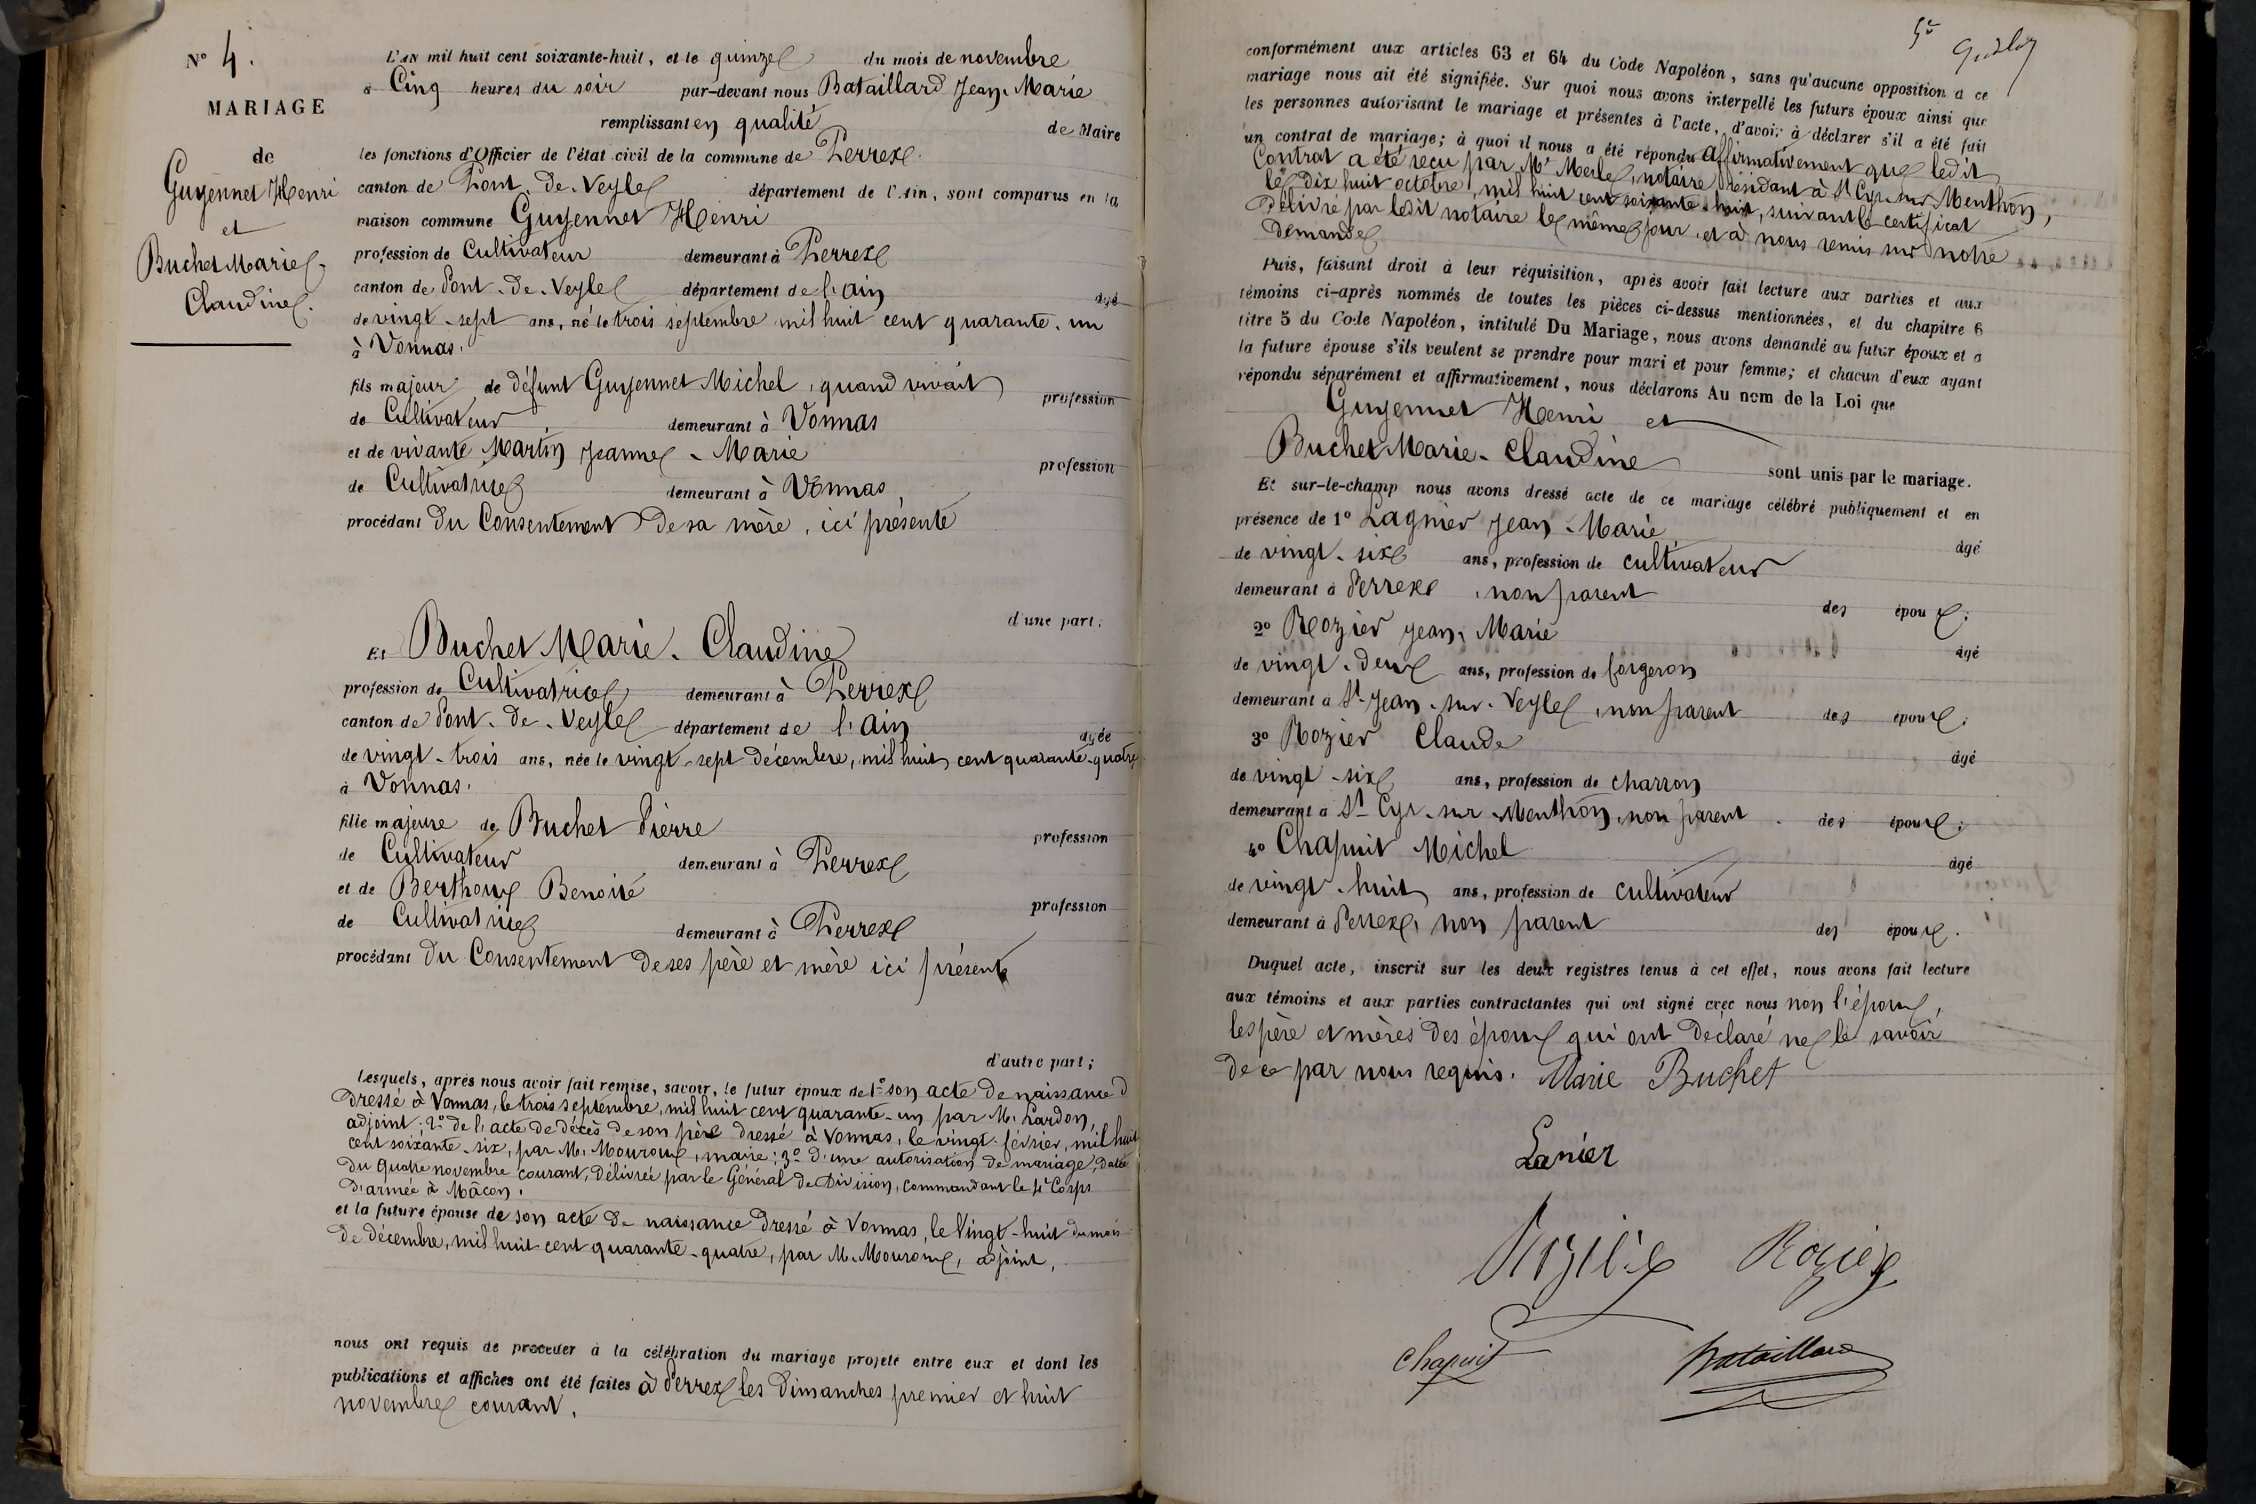 N° 4.
MARIAGE
de
Guyennet Henri
et
Buchet Marie-
Claudine.
L'AN mil huit cent soixante-huit, et le quinze du mois de novembre
à Cinq heures du soir par-devant nous Bataillard Jean-Marie
remplissant en qualité de Maire
les fonctions d'Officier de l'état civil de la commune de Perrex.
canton de Pont-de-Veyle département de l'Ain, sont comparus en la
maison commune Guyennet Henri
profession de Cultivateur demeurant à Perrex
canton de Pont-de-Veyle département de l'Ain âgé
de vingt-sept ans, né le trois septembre mil huit cent quarante-un
à Vonnas.
fils majeur de défunt Guyennet Michel, quand vivait profession
de Cultivateur demeurant à Vonnas
et de vivante Martin Jeanne-Marie profession
de Cultivatrice demeurant à Vonnas
procédant du Consentement de sa mère, ici présente
d'une part;
Et Buchet Marie-Claudine
profession de Cultivatrice demeurant à Perrex
canton de Pont-de-Veyle département de l'Ain âgée
de vingt-trois ans, née le vingt-sept décembre, mil huit cent quarante-quatre
à Vonnas.
fille majeure de Buchet Pierre profession
de Cultivateur demeurant à Perrex
et de Berthoux Benoite profession
de Cultivatrice demeurant à Perrex
procédant du Consentement de ses père et mère ici présents
d'autre part;
Lesquels, après nous avoir fait remise, savoir, le futur époux de 1° son acte de naissance
dressé à Vonnas, le trois septembre, mil huit cent quarante-un par M. Lardon,
adjoint; 2° de l'acte de décès de son père dressé à Vonnas, le vingt février, mil huit
cent soixante-six, par M. Mouroux, maire; 3° d'une autorisation de mariage, datée
du quatre novembre courant, délivrée par le Général de Division, commandant le 4e Corps
d'armée à Mâcon.
et la future épouse de son acte de naissance dressé à Vonnas, le Vingt-huit du mois
de décembre, mil huit cent quarante-quatre, par M. Mouroux, adjoint,
nous ont requis de procéder à la célébration du mariage projeté entre eux et dont les
publications et affiches ont été faites à Perrex les dimanches premier et huit
novembre courant,
conformément aux articles 63 et 64 du Code Napoléon, sans qu'aucune opposition à ce
mariage nous ait été signifiée. Sur quoi nous avons interpellé les futurs époux ainsi que
les personnes autorisant le mariage et présentes à l'acte, d'avoir à déclarer s'il a été fait
un contrat de mariage; à quoi il nous a été répondu affirmativement que ledit
Contrat a été reçu par Me Merle, notaire résidant à St Cyr-sur-Menthon,
le dix huit octobre, mil huit cent soixante-huit, suivant le certificat
délivré par ledit notaire le même jour, et à nous remis sur notre
demande
Puis, faisant droit à leur réquisition, après avoir fait lecture aux parties et aux
témoins ci-après nommés de toutes les pièces ci-dessus mentionnées, et du chapitre 6
titre 5 du Code Napoléon, intitulé Du Mariage, nous avons demandé au futur époux et à
la future épouse s'ils veulent se prendre pour mari et pour femme; et chacun d'eux ayant
répondu séparément et affirmativement, nous déclarons Au nom de la Loi que
Guyennet Henri et
Buchet Marie-Claudine sont unis par le mariage.
Et sur-le-champ nous avons dressé acte de ce mariage célébré publiquement et en
présence de 1° Lagnier Jean-Marie âgé
de vingt-six ans, profession de cultivateur
demeurant à Perrex, non parent des époux;
2° Rozier Jean-Marie âgé
de vingt-deux ans, profession de forgeron
demeurant à St-Jean-sur-Veyle, non parent des époux;
3° Rozier Claude âgé
de vingt-six ans, profession de charron
demeurant à St Cyr-sur-Menthon, non parent des époux;
4° Chapuit Michel âgé
de vingt-huit ans, profession de cultivateur
demeurant à Perrex, non parent des époux.
Duquel acte, inscrit sur les deux registres tenus à cet effet, nous avons fait lecture
aux témoins et aux parties contractantes qui ont signé avec nous non l'époux,
les père et mères des époux qui ont déclaré ne le savoir
de ce par nous requis. Marie Buchet
Lanier
Rozier
Chapuit Bataillard